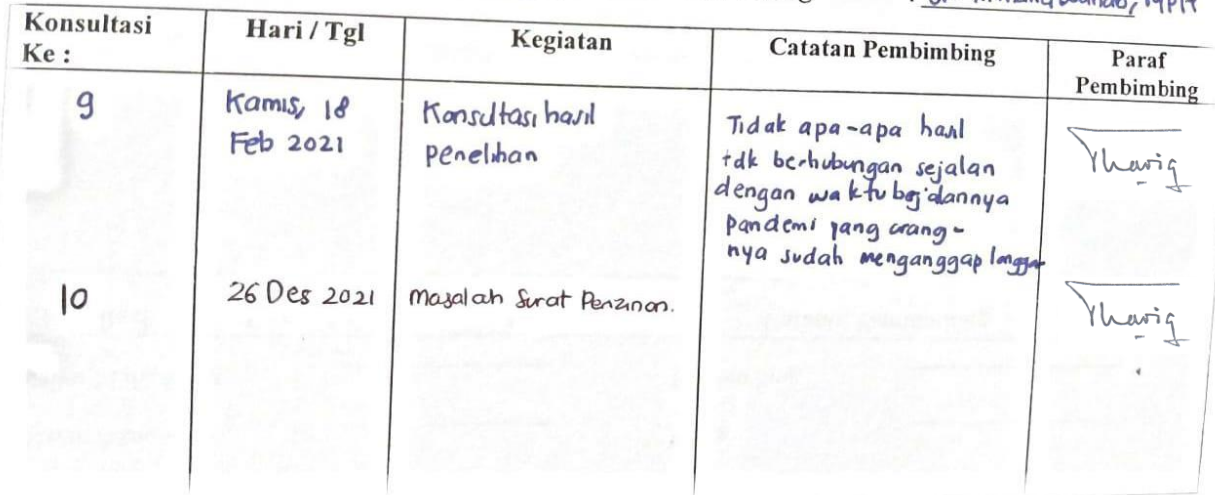 Konsultasi Ke :
Hari / Tgl
Kegiatan
Catatan Pembimbing
Paraf Pembimbing
9
Kamis, 18
Feb 2021
Konsultasi hasil
penelitian
Tidak apa-apa hasil
tdk berhubungan sejalan
dengan waktu
pandemi yang orang-
nya sudah menganggap
10
26 Des 2021
Masalah Surat Perizinan.